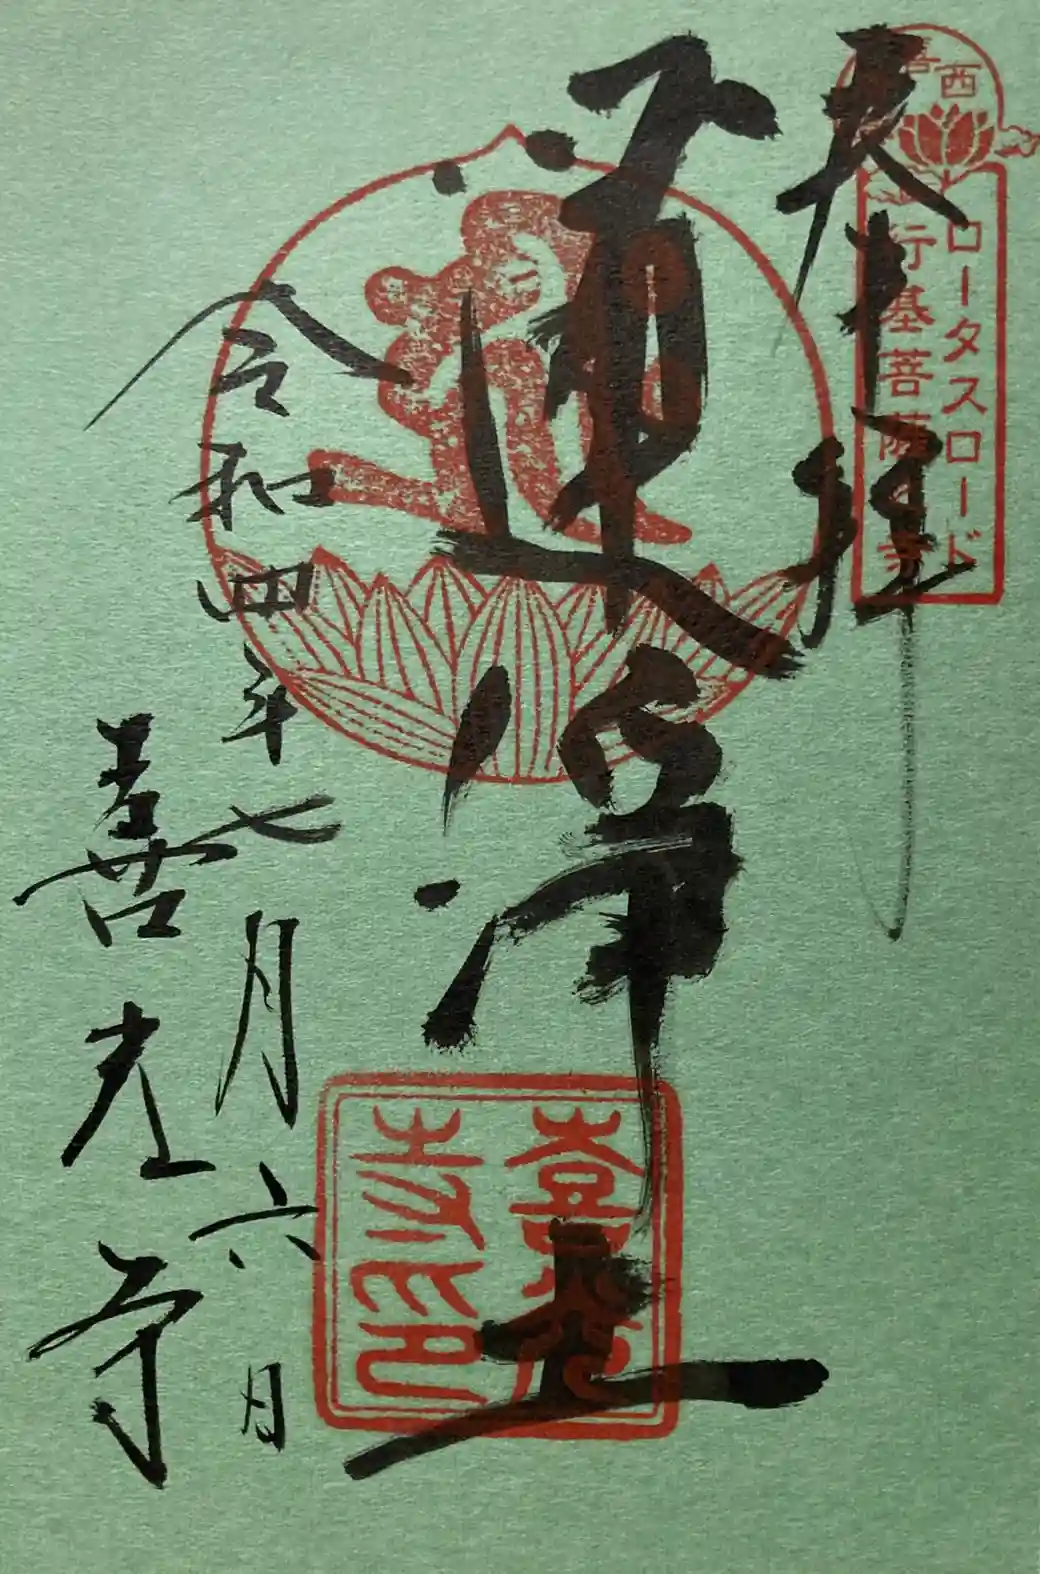 奉拝
西
喜
ロータスロード
行基菩薩の寺
蓮浄土
喜光
寺印
令和四年七月六日
喜光寺